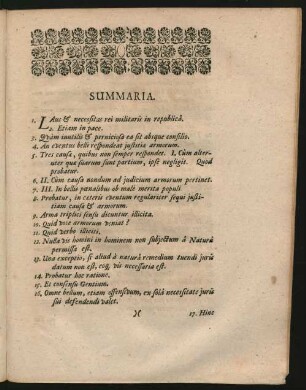 SUMMARIA.
1. LAus & necessitas rei militaris in republicâ.
2. Etiam in pace.
3. Quàm inutilis & perniciosa ea sit absque consilio.
4. An eventus belli respondeat justitiæ armorum.
5. Tres causæ, quibus non semper respondet. I. Cùm alteruter
quæ suarum sunt partium, ipse negligit. Quod
probatur.
6. II. Cùm causa nondum ad judicium armorum pertinet.
7. III. In bellis pænalibus ob malè merita populi
8. Probatur, in cæteris eventum regulariter sequi justitiam
causæ & armorum.
9. Arma triplici sensu dicuntur illicita.
10. Quid voce armorum veniat?
11. Quid verbo illiciti.
12. Nulla vis homini in hominem non subjectum à Naturâ
permissa est.
13. Una exceptio, si aliud à naturâ remedium tuendi juris
datum non est, eoq; vis necessaria est.
14. Probatur hoc ratione.
15. Et consensu Gentium.
16. Omne bellum, etiam offensivum, ex solâ necessitate juris
sui defendendi valet.
17. Hinc